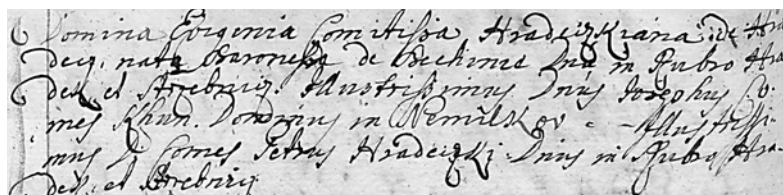 Domina Evigenia Comitissa Hradeczkiana: de Hra
decz, nata Baronessa de Bechinie Dna in Rubro Hra
dek et Strebniz. Illustrissimus Dnus Josephus Co:
mes Khun. Dominus in Nemilkov Illustrissi:
mus D: Comes Petrus Hradeczki Dnus in Rubro Hra:
dek et Strebniz